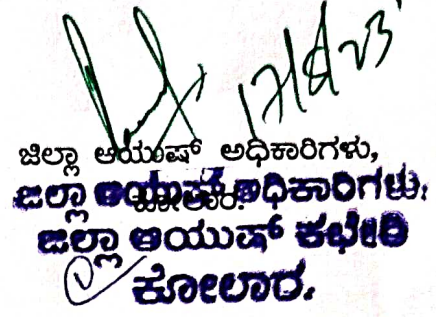 17/8/23
ಜಿಲ್ಲಾ ಆಯುಷ್ ಅಧಿಕಾರಿಗಳು,
ಕೋಲಾರ.
ಜಿಲ್ಲಾ ಆಯುಷ್ ಅಧಿಕಾರಿಗಳು.
ಜಿಲ್ಲಾ ಆಯುಷ್ ಕಛೇರಿ
ಕೋಲಾರ.